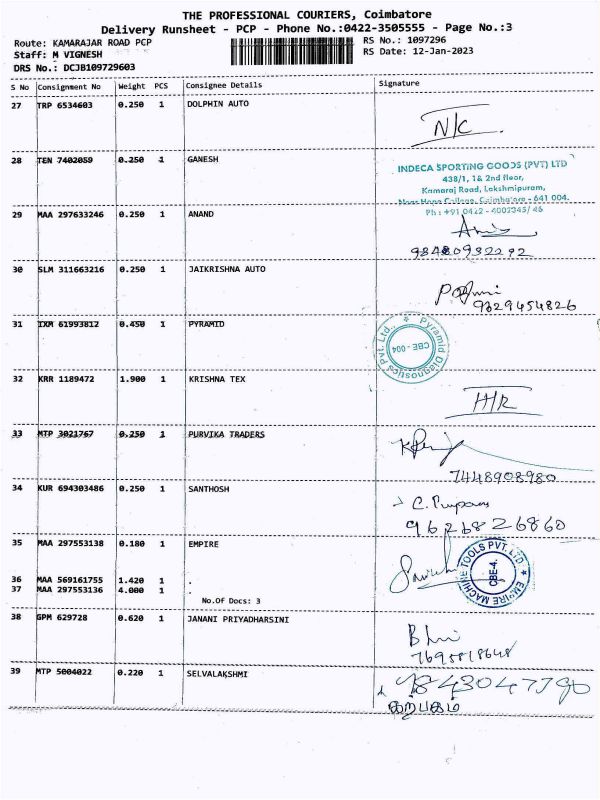 THE PROFESSIONAL COURIERS, Coimbatore
Delivery Runsheet - PCP - Phone No.:0422-3505555 - Page No.:3
Route: KAMARAJAR ROAD PCP
RS No.: 1097296
Staff: M VIGNESH
RS Date: 12-Jan-2023
DRS No.: DCJB109729603
S No Consignment No Weight PCS Consignee Details Signature
27 TRP 6534603 0.250 1 DOLPHIN AUTO
N/C
28 TEN 7402059 0.250 1 GANESH
INDECA SPORTING GOODS (PVT) LTD
438/1, 1& 2nd floor,
Kamaraj Road, Lakshmipuram,
Coimbatore - 641 004.
Ph : +91 0422 - 4002345/ 46
29 MAA 297633246 0.250 1 ANAND
30 SLM 311663216 0.250 1 JAIKRISHNA AUTO
9329454826
31 IXM 61993812 0.450 1 PYRAMID
Pyramid Diagnostics Pvt. Ltd.,
CBE - 004
32 KRR 1189472 1.900 1 KRISHNA TEX
33 MTP 3021767 0.250 1 PURVIKA TRADERS
7448908980
34 KUR 694303486 0.250 1 SANTHOSH
9626826860
35 MAA 297553138 0.180 1 EMPIRE
EMPIRE MACHINE TOOLS PVT. LTD
CBE-4.
36 MAA 569161755 1.420 1 .
37 MAA 297553136 4.000 1 .
No.Of Docs: 3
38 GPM 629728 0.620 1 JANANI PRIYADHARSINI
7695818648
39 MTP 5004022 0.220 1 SELVALAKSHMI
கற்பகம்